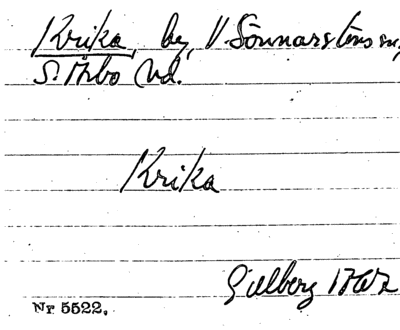 Krika, by, V. Sönnarslövs sn,
S. Åsbo hd.
Krika
Gillberg 1767
Nr 5522.